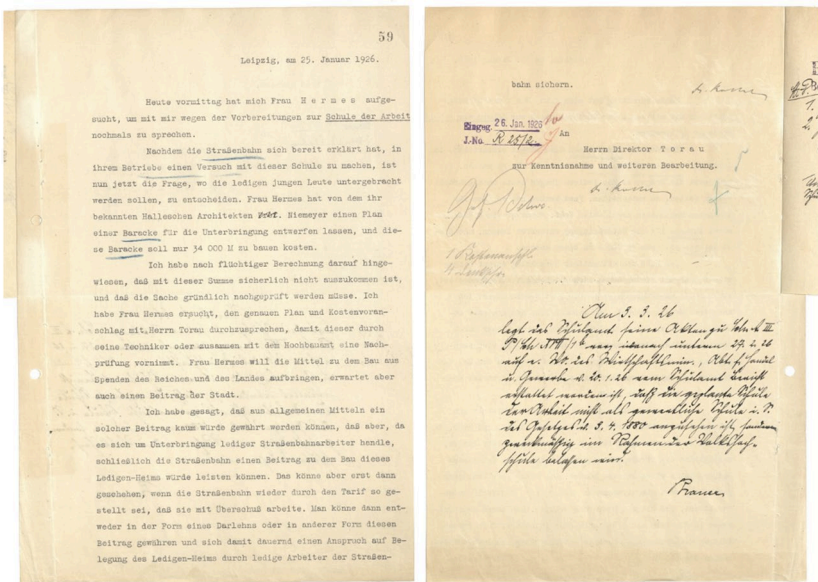 59
Leipzig, am 25. Januar 1926.
Heute vormittag hat mich Frau H e r m e s aufge-
sucht, um mit mir wegen der Vorbereitungen zur Schule der Arbeit
nochmals zu sprechen.
Nachdem die Straßenbahn sich bereit erklärt hat, in
ihrem Betriebe einen Versuch mit dieser Schule zu machen, ist
nun jetzt die Frage, wo die ledigen jungen Leute untergebracht
werden sollen, zu entscheiden. Frau Hermes hat von dem ihr
bekannten Halleschen Architekten Niemeyer einen Plan
einer Baracke für die Unterbringung entwerfen lassen, und die-
se Baracke soll nur 34 000 M zu bauen kosten.
Ich habe nach flüchtiger Berechnung darauf hinge-
wiesen, daß mit dieser Summe sicherlich nicht auszukommen ist,
und daß die Sache gründlich nachgeprüft werden müsse. Ich
habe Frau Hermes ersucht, den genauen Plan und Kostenvoran-
schlag mit Herrn Torau durchzusprechen, damit dieser durch
seine Techniker oder zusammen mit dem Hochbauamt eine Nach-
prüfung vornimmt. Frau Hermes will die Mittel zu dem Bau aus
Spenden des Reiches und des Landes aufbringen, erwartet aber
auch einen Beitrag der Stadt.
Ich habe gesagt, daß aus allgemeinen Mitteln ein
solcher Beitrag kaum würde gewährt werden können, daß aber, da
es sich um Unterbringung lediger Straßenbahnarbeiter handle,
schließlich die Straßenbahn einen Beitrag zu dem Bau dieses
Ledigen-Heims würde leisten können. Das könne aber erst dann
geschehen, wenn die Straßenbahn wieder durch den Tarif so ge-
stellt sei, daß sie mit Überschuß arbeite. Man könne dann ent-
weder in der Form eines Darlehns oder in anderer Form diesen
Beitrag gewähren und sich damit dauernd einen Anspruch auf Be-
legung des Ledigen-Heims durch ledige Arbeiter der Straßen-
bahn sichern.
Eingeg. 26. Jan. 1926
J.-No. R 25/2
An
Herrn Direktor T o r a u
zur Kenntnisnahme und weiteren Bearbeitung.
Am 3. 3. 26
legt das Schulamt seine Akten zu
auf v. des Wirtschaftsmin., Abt. f. Handel
u. Gewerbe v. 20.1.26 vom Schulamt
erstattet worden ist, daß die geplante Schule
der Arbeit nicht als gewerbliche Schule i. S.
des Gesetzes v. 3. 4. 1880 anzusehen ist, sondern
im Rahmen der Volkshoch-
schule belassen wird.